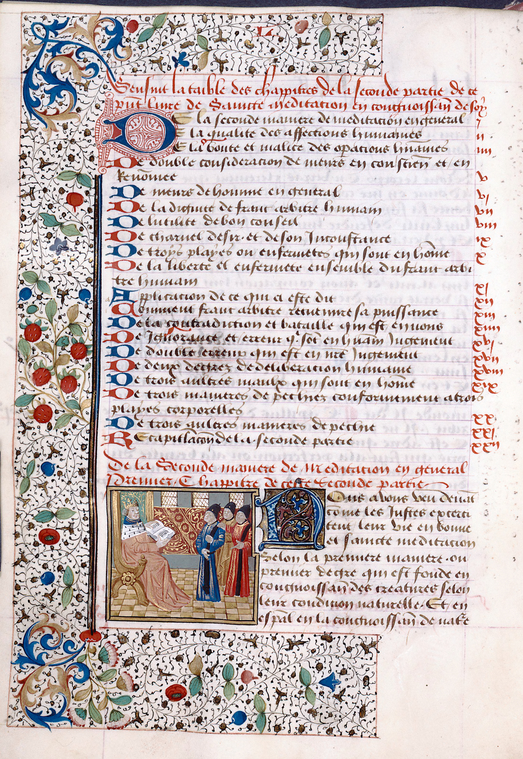 Sensuit la table des chappitres de la seconde partie de ce
put livre de Saincte meditation en congnoissan de soy
De la seconde maniere de meditation en general i
De la qualite des affections humaines ii
De la bonte et malice des opacions huaines iii
De double consideration de meurs en conscien et en iiii
Renomee
De meurs de homme en general v
De la dignite de franc arbitre humain vi
De lutilite de bon conseil vii
De charnel desir et de son Inconstance viii
De troys playes ou enfermetes qui sont en home ix
De la liberte et enfermete ensemble du franc arbi x
tre humain
Applicacion de ce qui a este dit xi
Comment franc arbitre recouvre sa puissance xii
De la contradiction et bataille qui est en nous xiii
De Ignorance et erreur qi est en huain Jugement
De double erreur qui est en nre Jugement
De deux degres de deliberation humaine
De trois aultres maulx qui sont en home
De trois manieres de pechies conformement a trois xix
playes corporelles
De trois aultres manieres de pechie xx
Recapitulacion de la seconde partie xxi
De la Seconde maniere de Meditation en general
Premier Chapitre de ceste Seconde partie
Nous avons veu devat
come les Justes excercitent
leur vie en bonne
et saincte meditacion
selon la premiere maniere ou
premier degre qui est fonde en
congnoissan des creatures selon
leur condicion naturelle Et en
espal en la congnoissan de nake